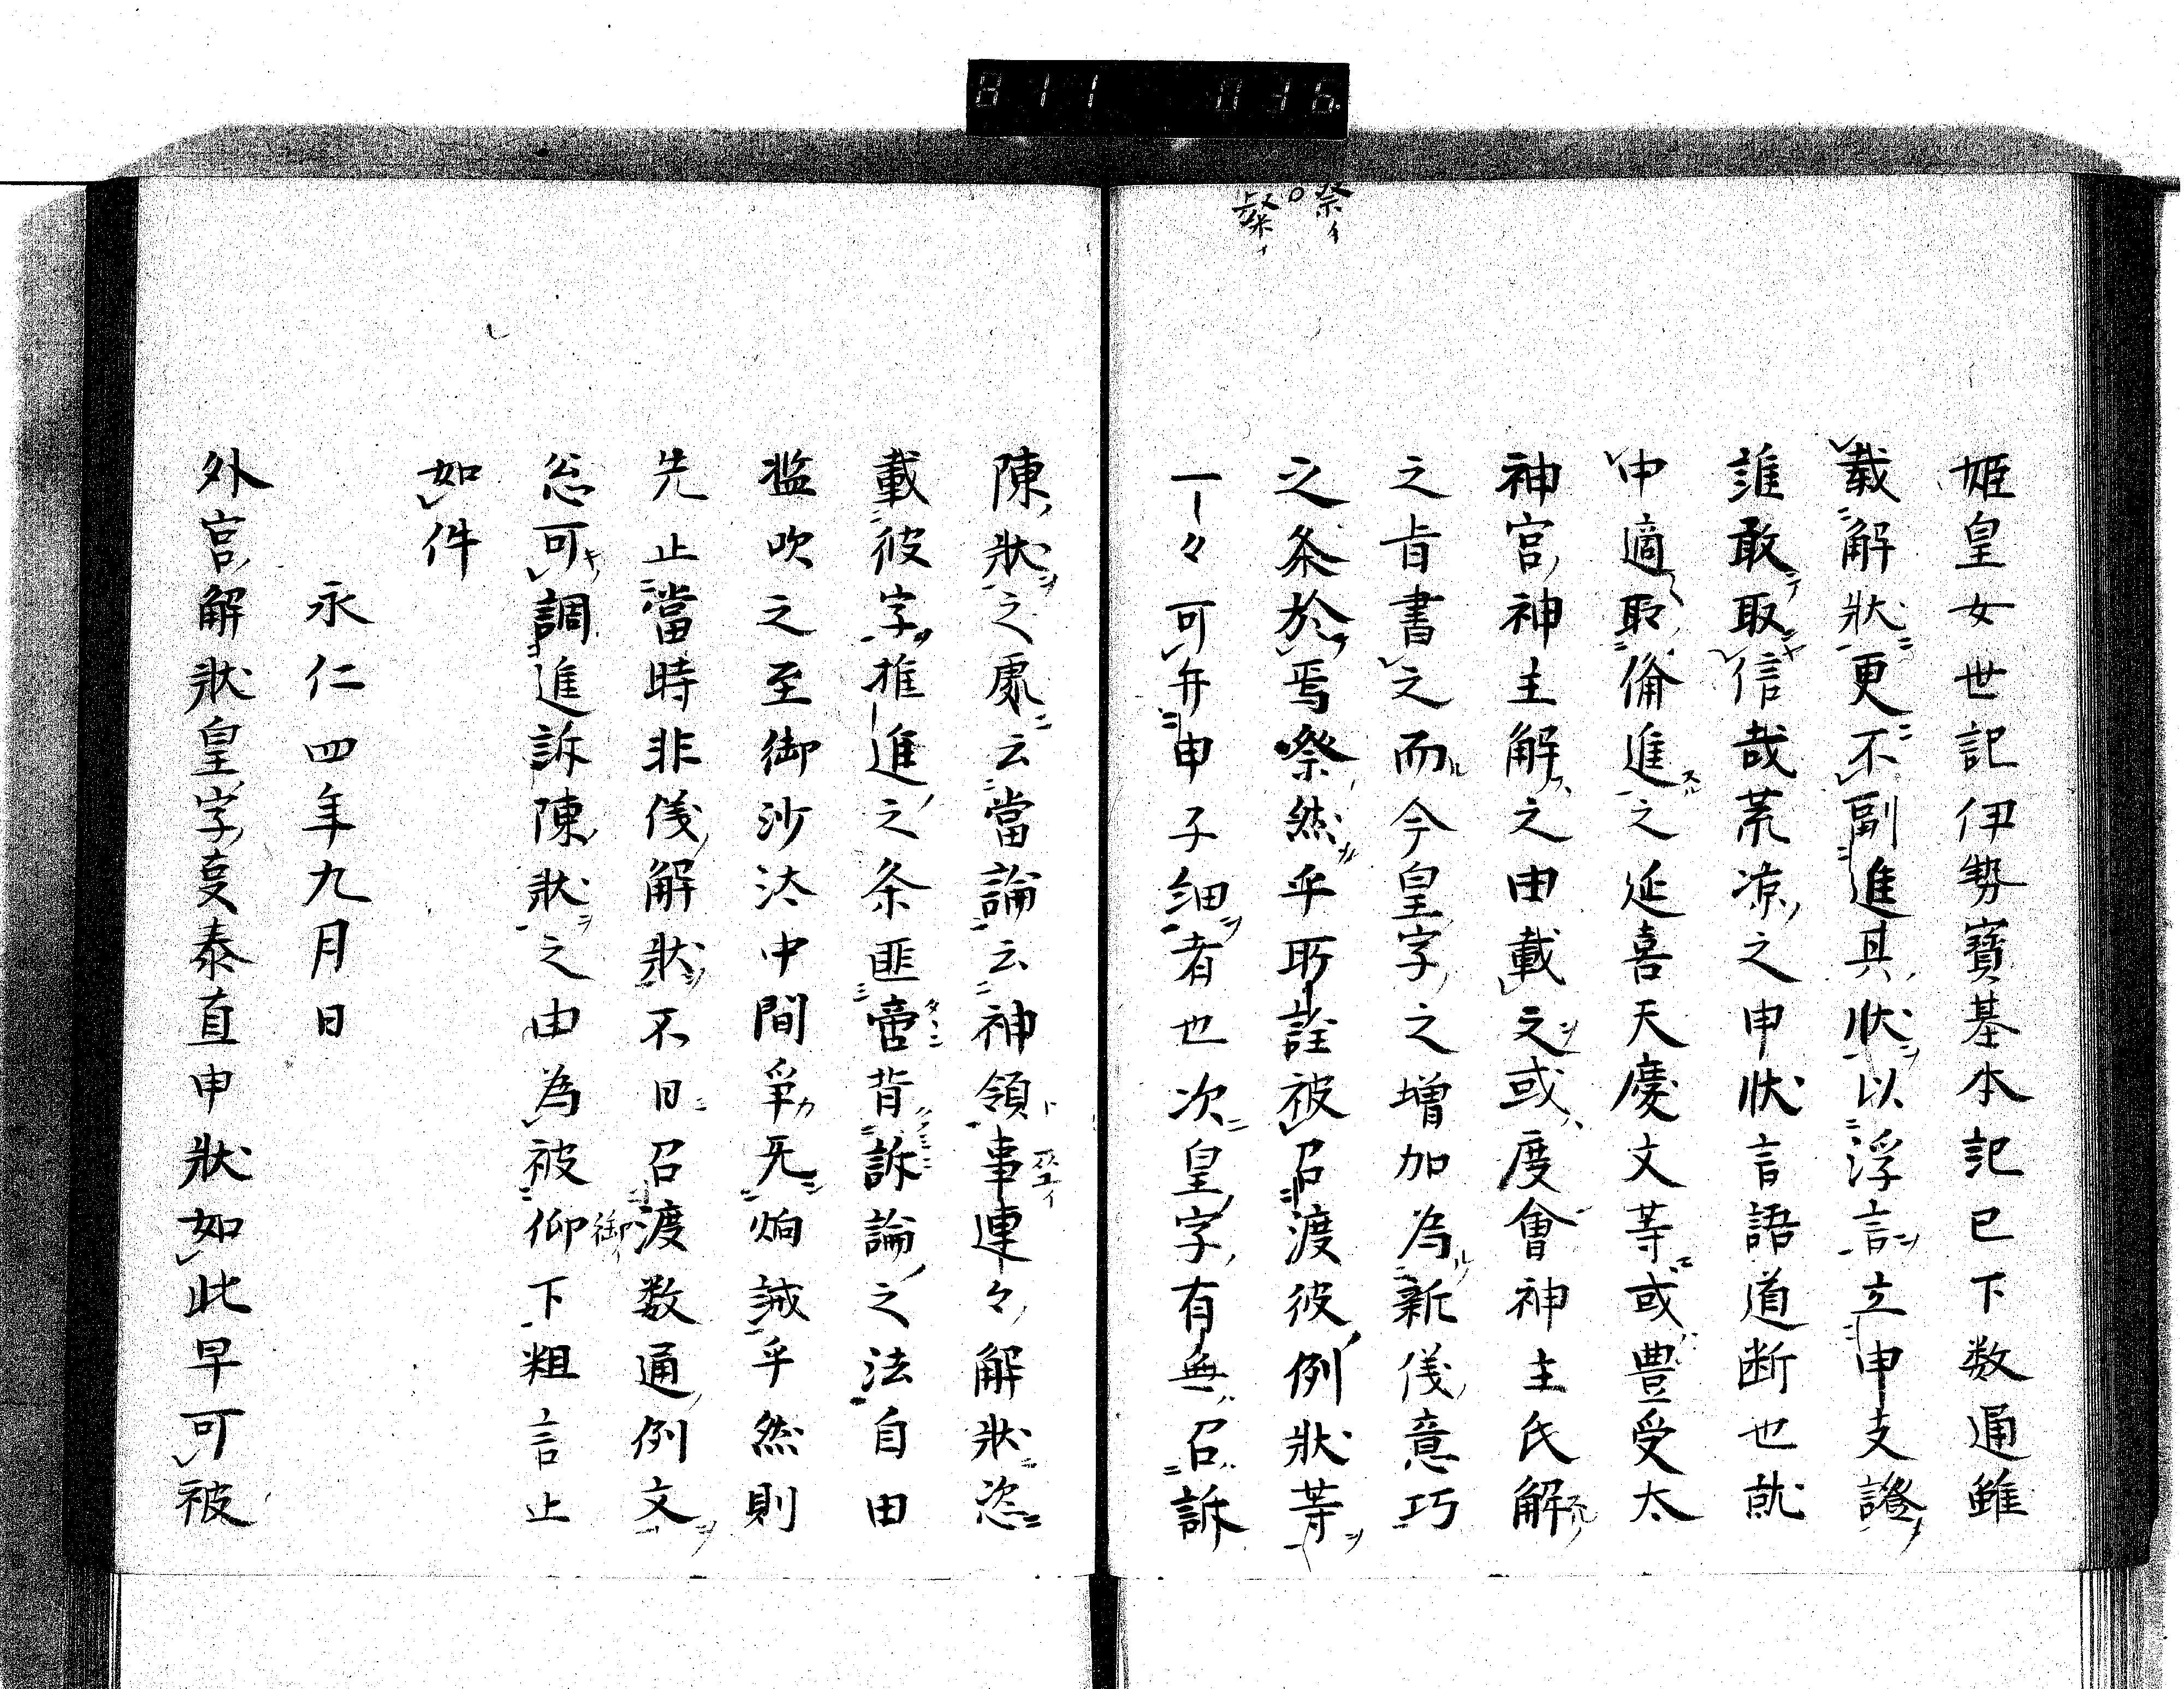 姫皇女世記伊勢寶基本記已下数通雖
載解状更不副進其状以浮言立申支證
誰敢取信哉荒涼之申状言語道断也就
申適取俻進之延喜天慶文等或豊受太
神宮神主解之由載之或度會神主氏解
之旨書之而今皇字之増加為新儀意巧
之条於焉祭然乎所詮被召渡彼例状等
一々可弁申子細者也次皇字有無召訴
陳状之處云當論云神領事連々解状恣
載彼字推進之条匪啻背訴論之法自由
濫吹之至御沙汰中間爭无炳誡乎然則
先止當時非儀解状不日召渡数通例文
忩可調進訴陳状之由為被仰下粗言止
御
如件
永仁四年九月日
外宮解状皇字叓泰直申状如此早可被
祭イ
粲イ
811 036